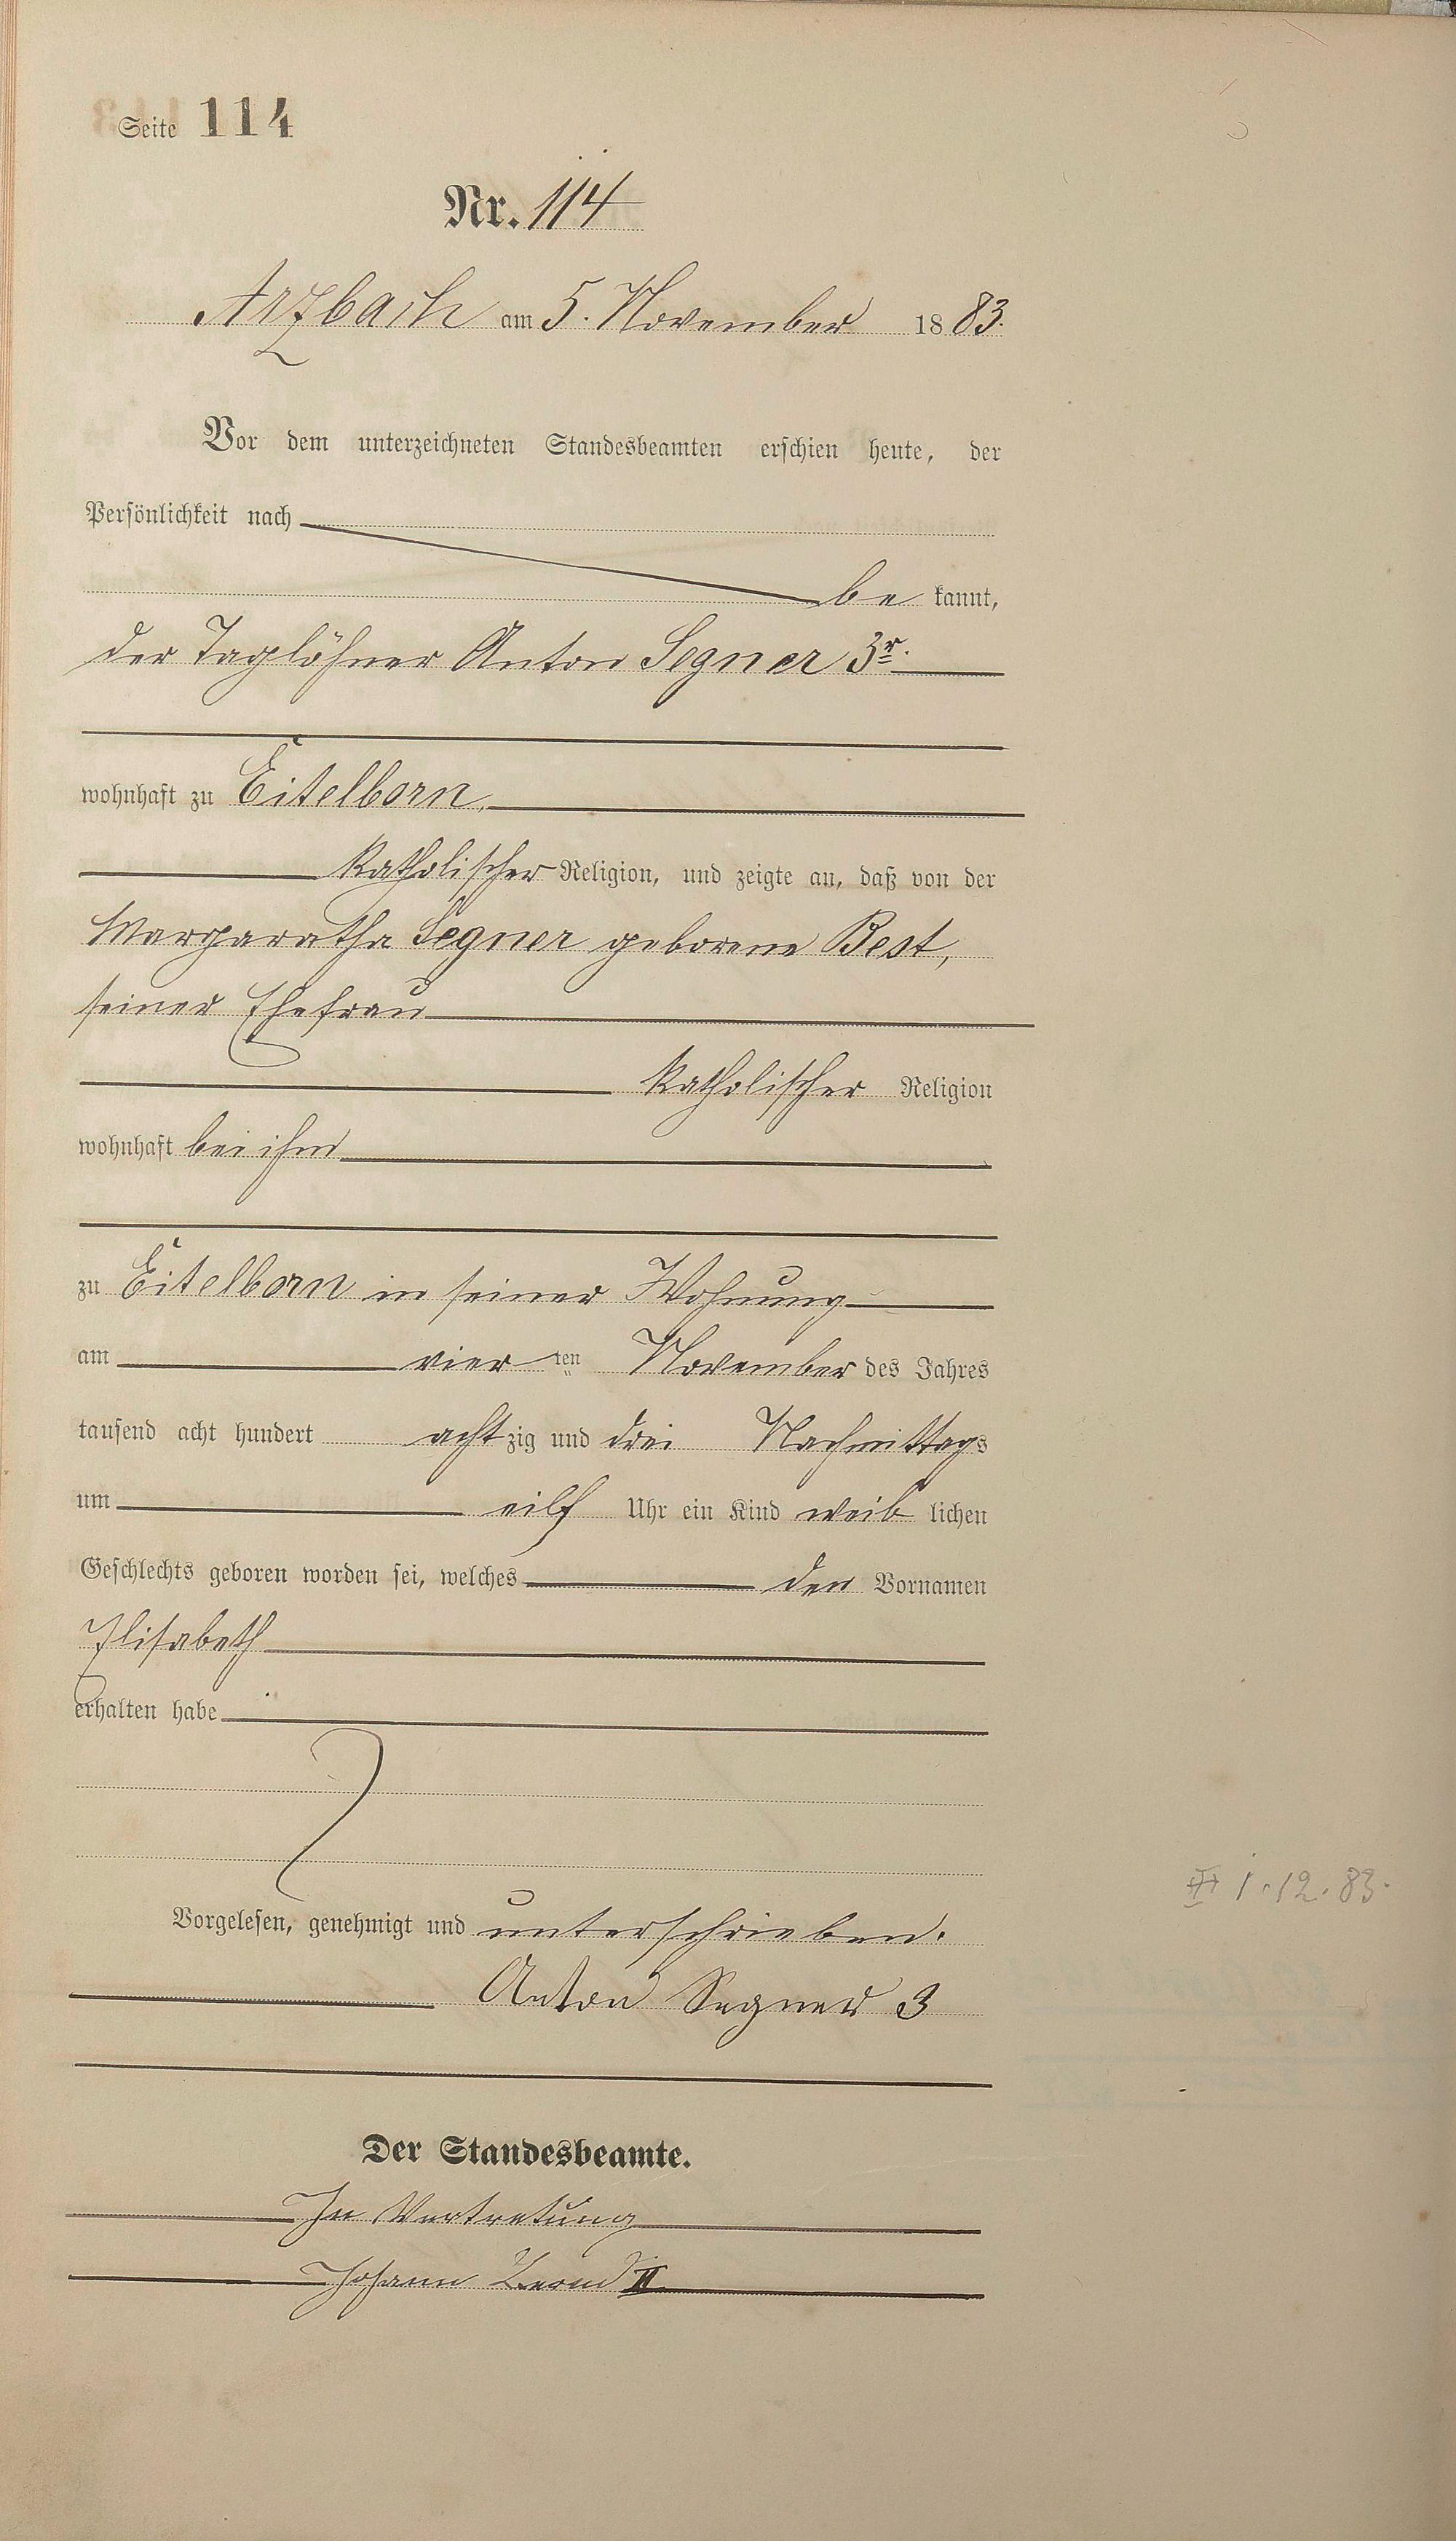 Seite 114
Nr. 114
Arzbach am 5. November 1883.
Vor dem unterzeichneten Standesbeamten erschien heute, der
Persönlichkeit nach
be kannt,
der Taglöhner Anton Segner 3r.
wohnhaft zu Eitelborn,
katholischer Religion, und zeigte an, daß von der
Margaratha Segner geborene Best,
seiner Ehefrau
katholischer Religion
wohnhaft bei ihm
zu Eitelborn in seiner Wohnung
am vier ten November des Jahres
tausend acht hundert achtzig und drei Nachmittags
um eilf Uhr ein Kind weib lichen
Geschlechts geboren worden sei, welches den Vornamen
Elisabeth
erhalten habe
Vorgelesen, genehmigt und unterschrieben.
Anton Segner 3
Der Standesbeamte.
In Vertretung
Johann II
1.12.83.